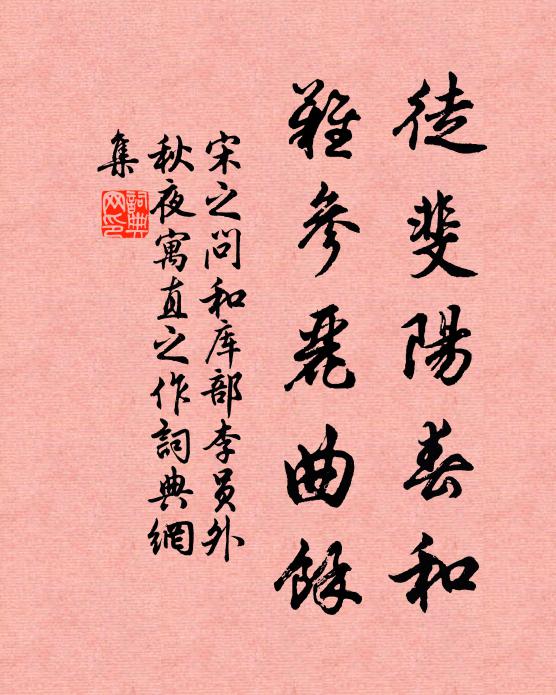 徒斐陽春和
難參麗曲餘
宋之問和库部李员外
秋夜寓直之作詞典網
集
詞典网印